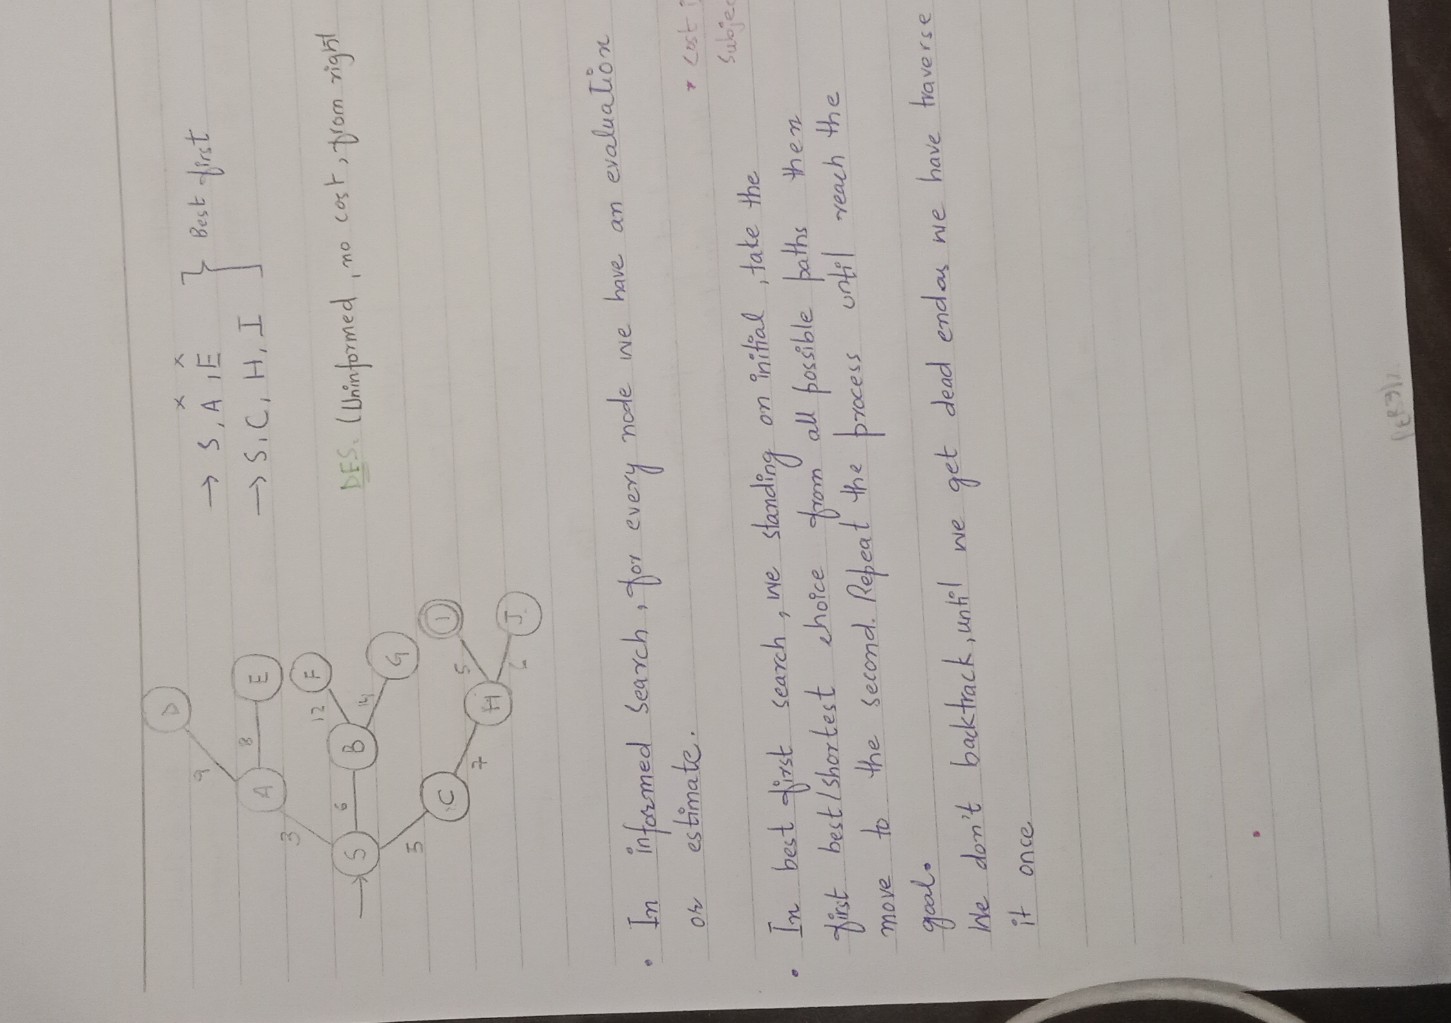 D
9
A 8 E
3
12 F
S 6 B
14
G
5
C I
7 5
H
6 J
x x
→ S, A, E } Best first
→ S, C, H, I
DFS. (Uninformed, no cost, from right
• In informed search, for every node we have an evaluation
or estimate.
* cost
Subjec
• In best first search, we standing on initial, take the
first best/shortest choice from all possible paths then
move to the second. Repeat the process until reach the
goal.
We don't backtrack, until we get dead end as we have traverse
it once